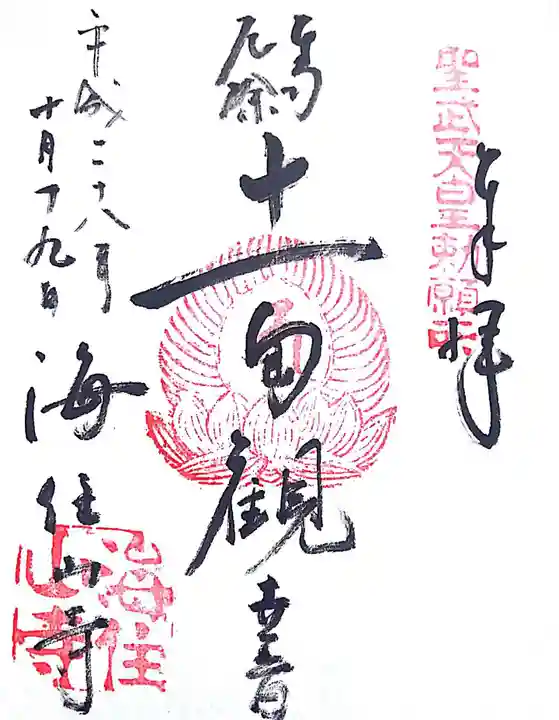 奉拝
聖武天皇勅願所
厄除
十一面観音
海住山寺
平成二十八年
十月十九日
海住山寺